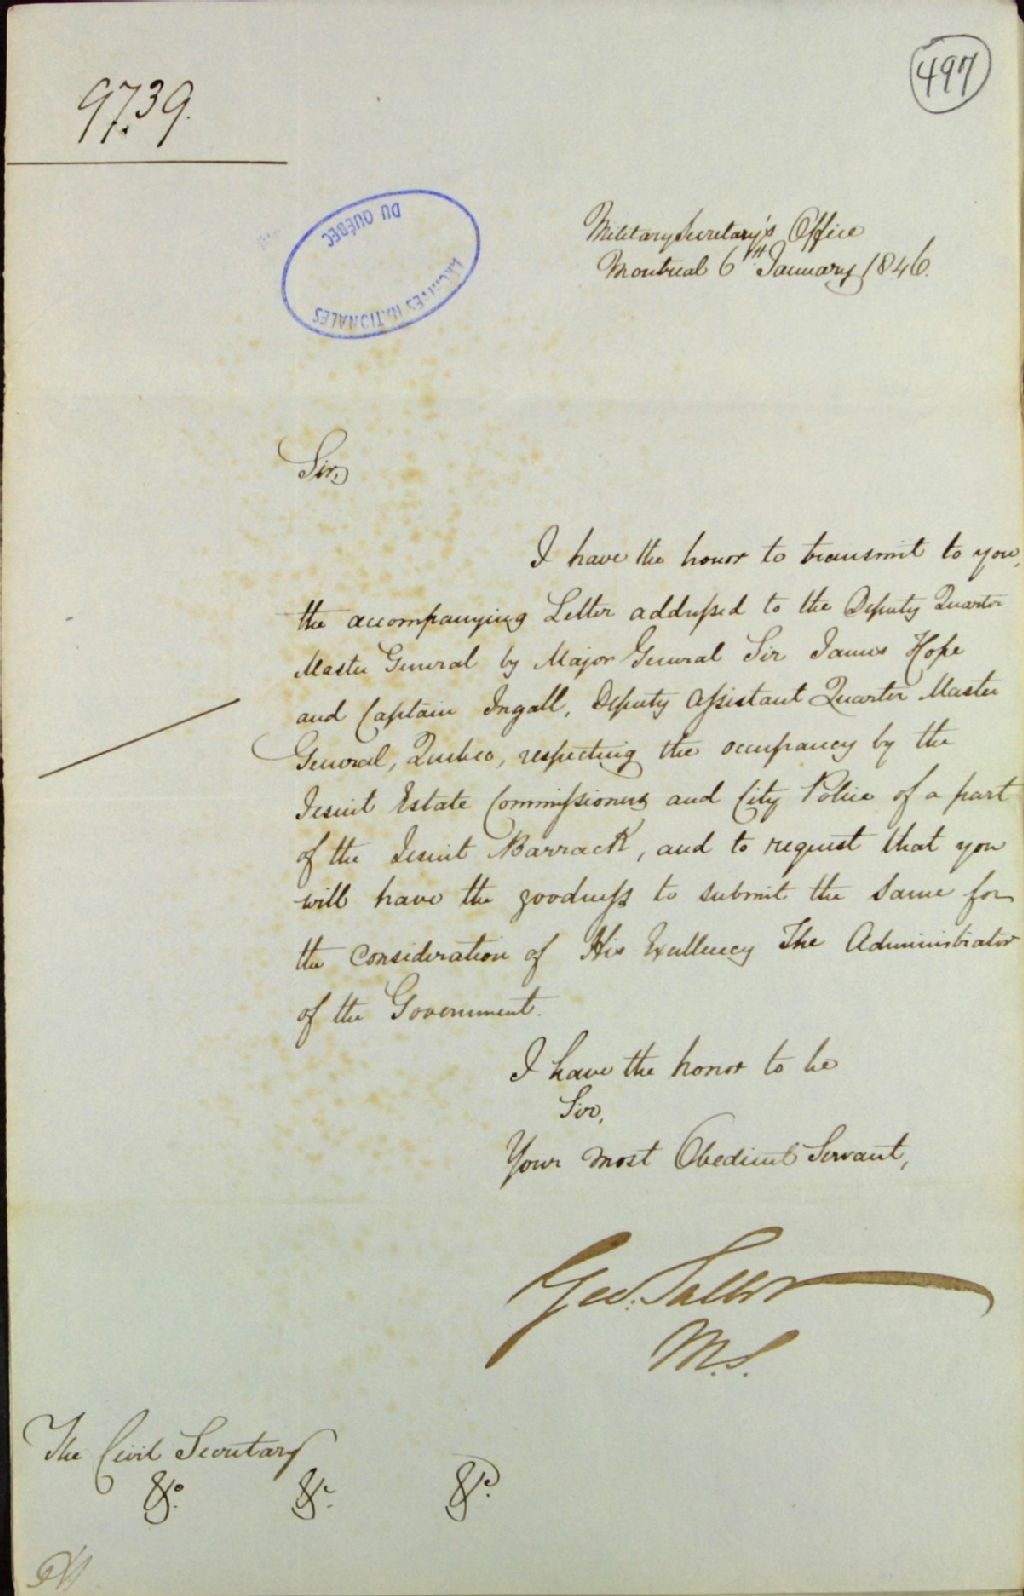 497
9739.
ARCHIVES NATIONALES
DU QUÉBEC
Military Secretary's Office
Montreal 6TH January 1846.
Sir,
I have the honor to transmit to you,
the accompanying Letter addressed to the Deputy Quarter
Master General by Major General Sir James Hope
and Captain Ingall, Deputy Assistant Quarter Master
General, Quebec, respecting the occupancy by the
Jesuit Estate Commissioners and City Police of a part
of the Jesuit Barrack, and to request that you
will have the goodness to submit the same for
the consideration of His Excellency The Administrator
of the Government.
I have the honor to be
Sir,
Your most Obedient Servant,
Geo.
M.S.
The Civil Secretary
&c. &c. &c.